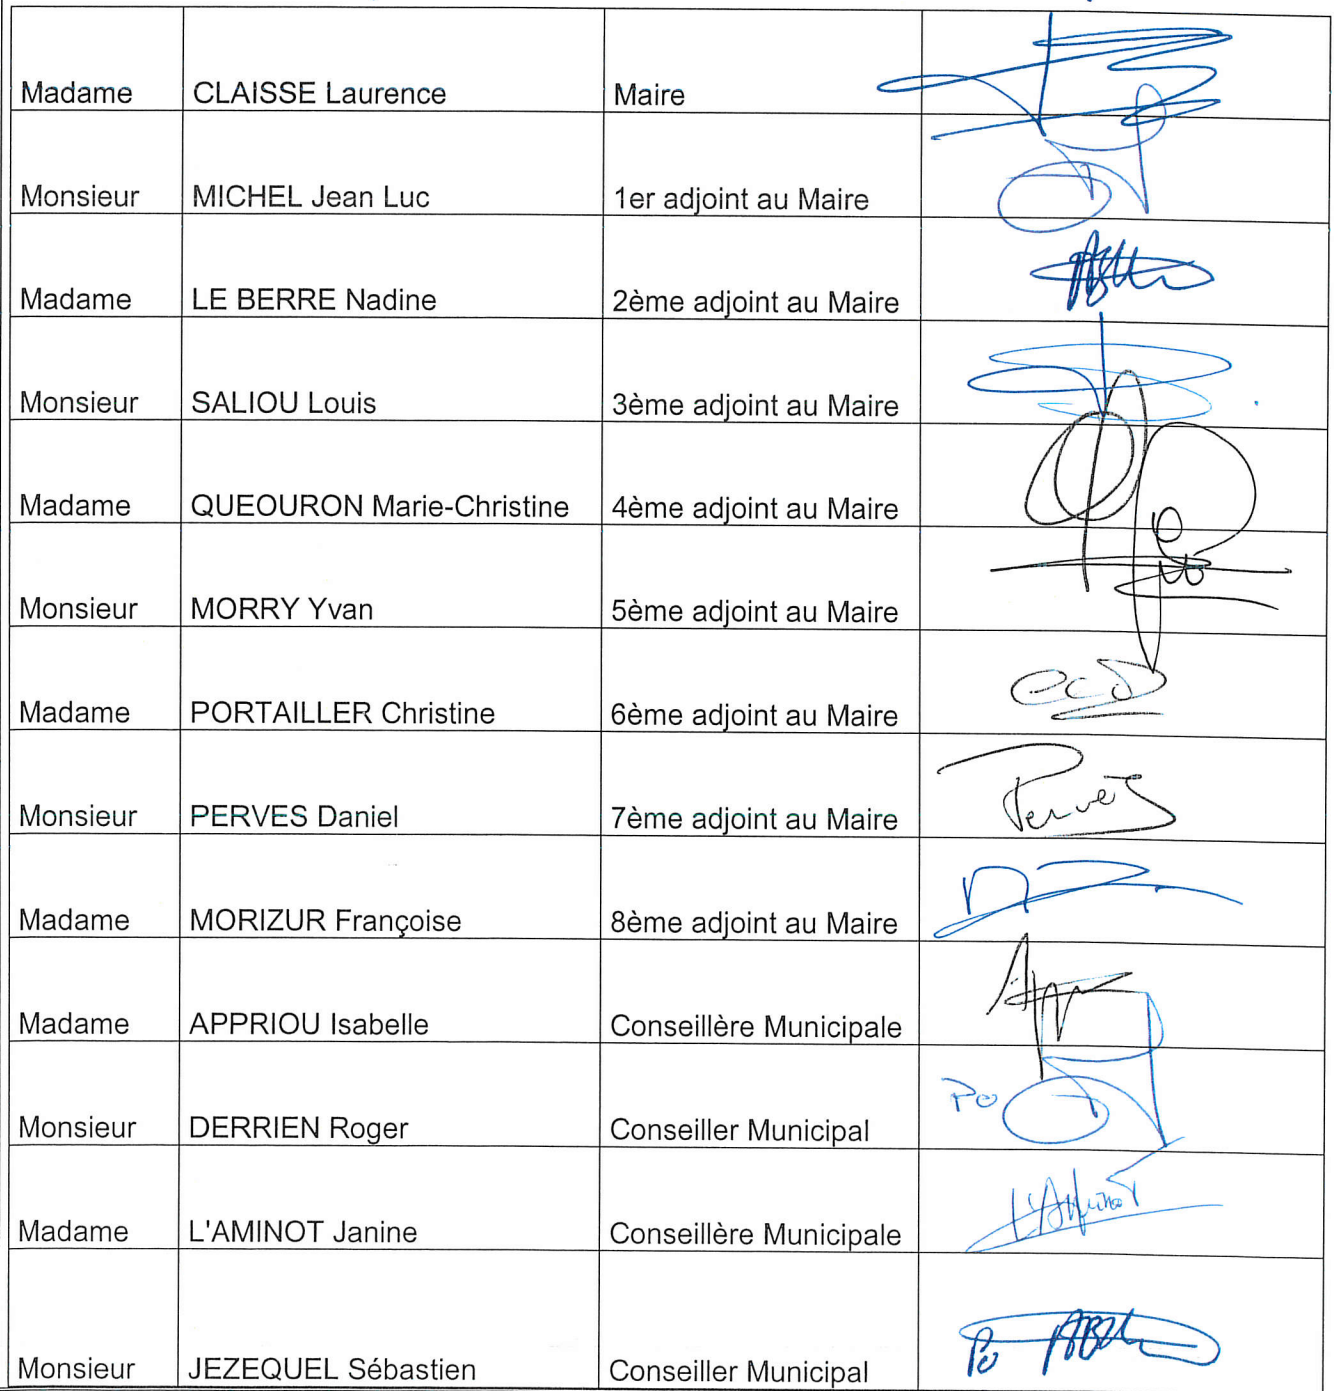 Madame CLAISSE Laurence Maire
Monsieur MICHEL Jean Luc 1er adjoint au Maire
Madame LE BERRE Nadine 2ème adjoint au Maire
Monsieur SALIOU Louis 3ème adjoint au Maire
Madame QUEOURON Marie-Christine 4ème adjoint au Maire
Monsieur MORRY Yvan 5ème adjoint au Maire
Madame PORTAILLER Christine 6ème adjoint au Maire
Monsieur PERVES Daniel 7ème adjoint au Maire Perves
Madame MORIZUR Françoise 8ème adjoint au Maire
Madame APPRIOU Isabelle Conseillère Municipale
Monsieur DERRIEN Roger Conseiller Municipal Po
Madame L'AMINOT Janine Conseillère Municipale L'Aminot
Monsieur JEZEQUEL Sébastien Conseiller Municipal Po